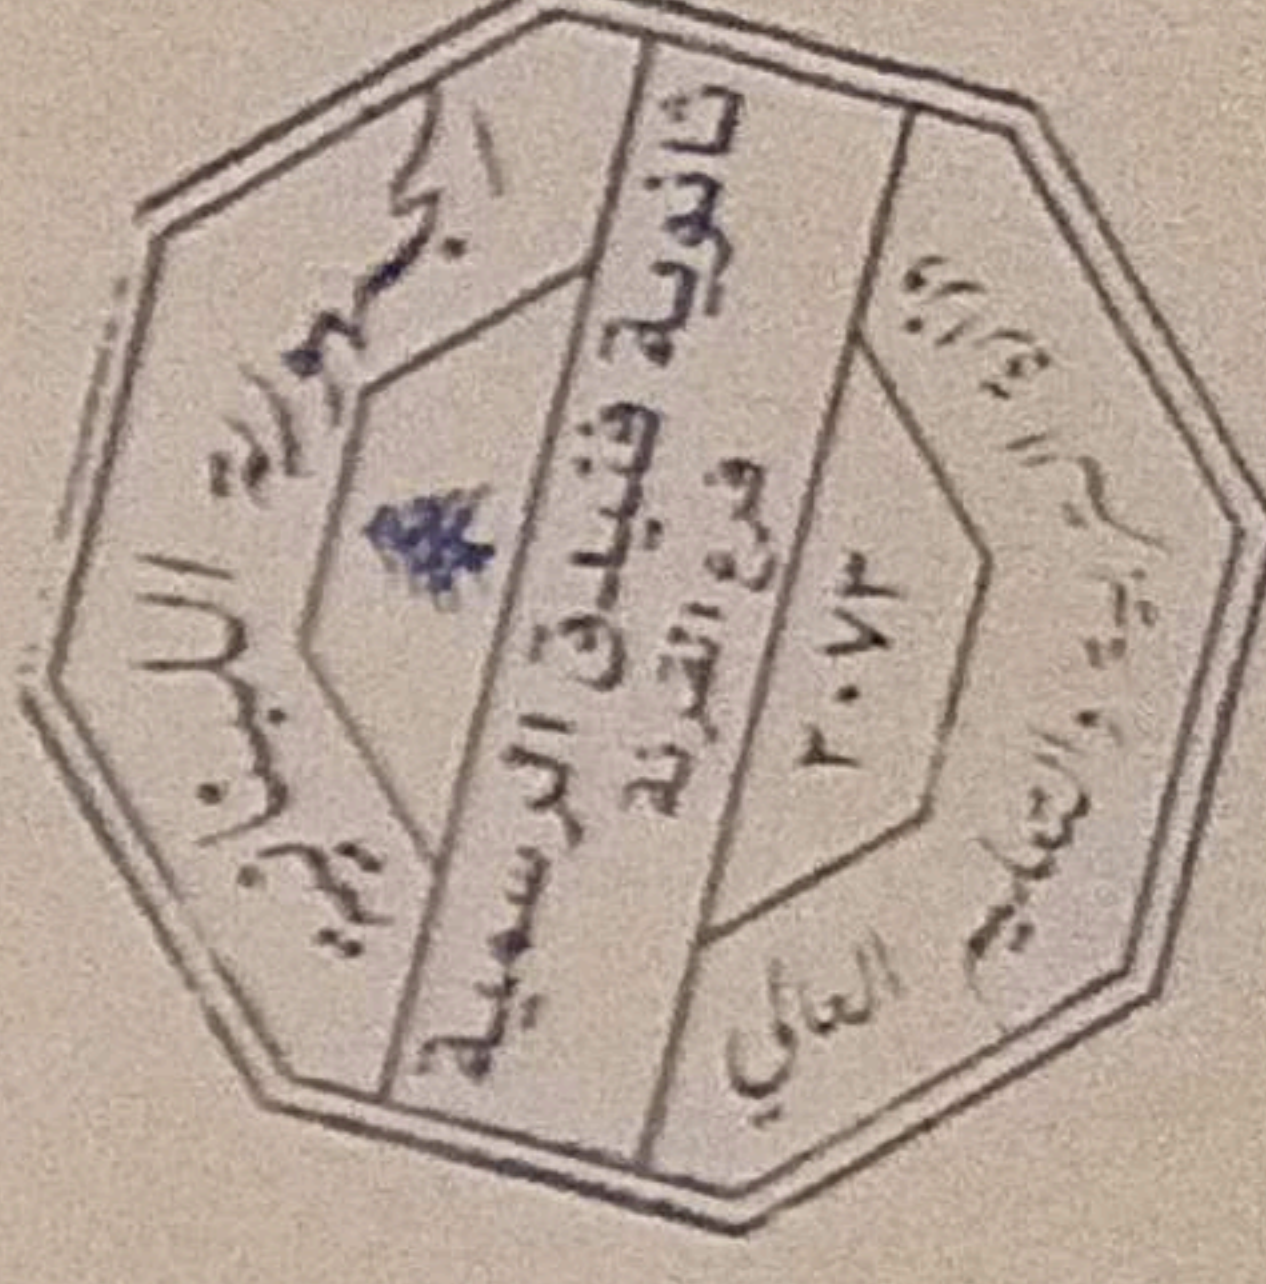 الجمهورية اللبنانية
ثانوية فنيدق الرسمية
فرع القرنة
٢٠٧٣
وزارة التربية والتعليم العالي